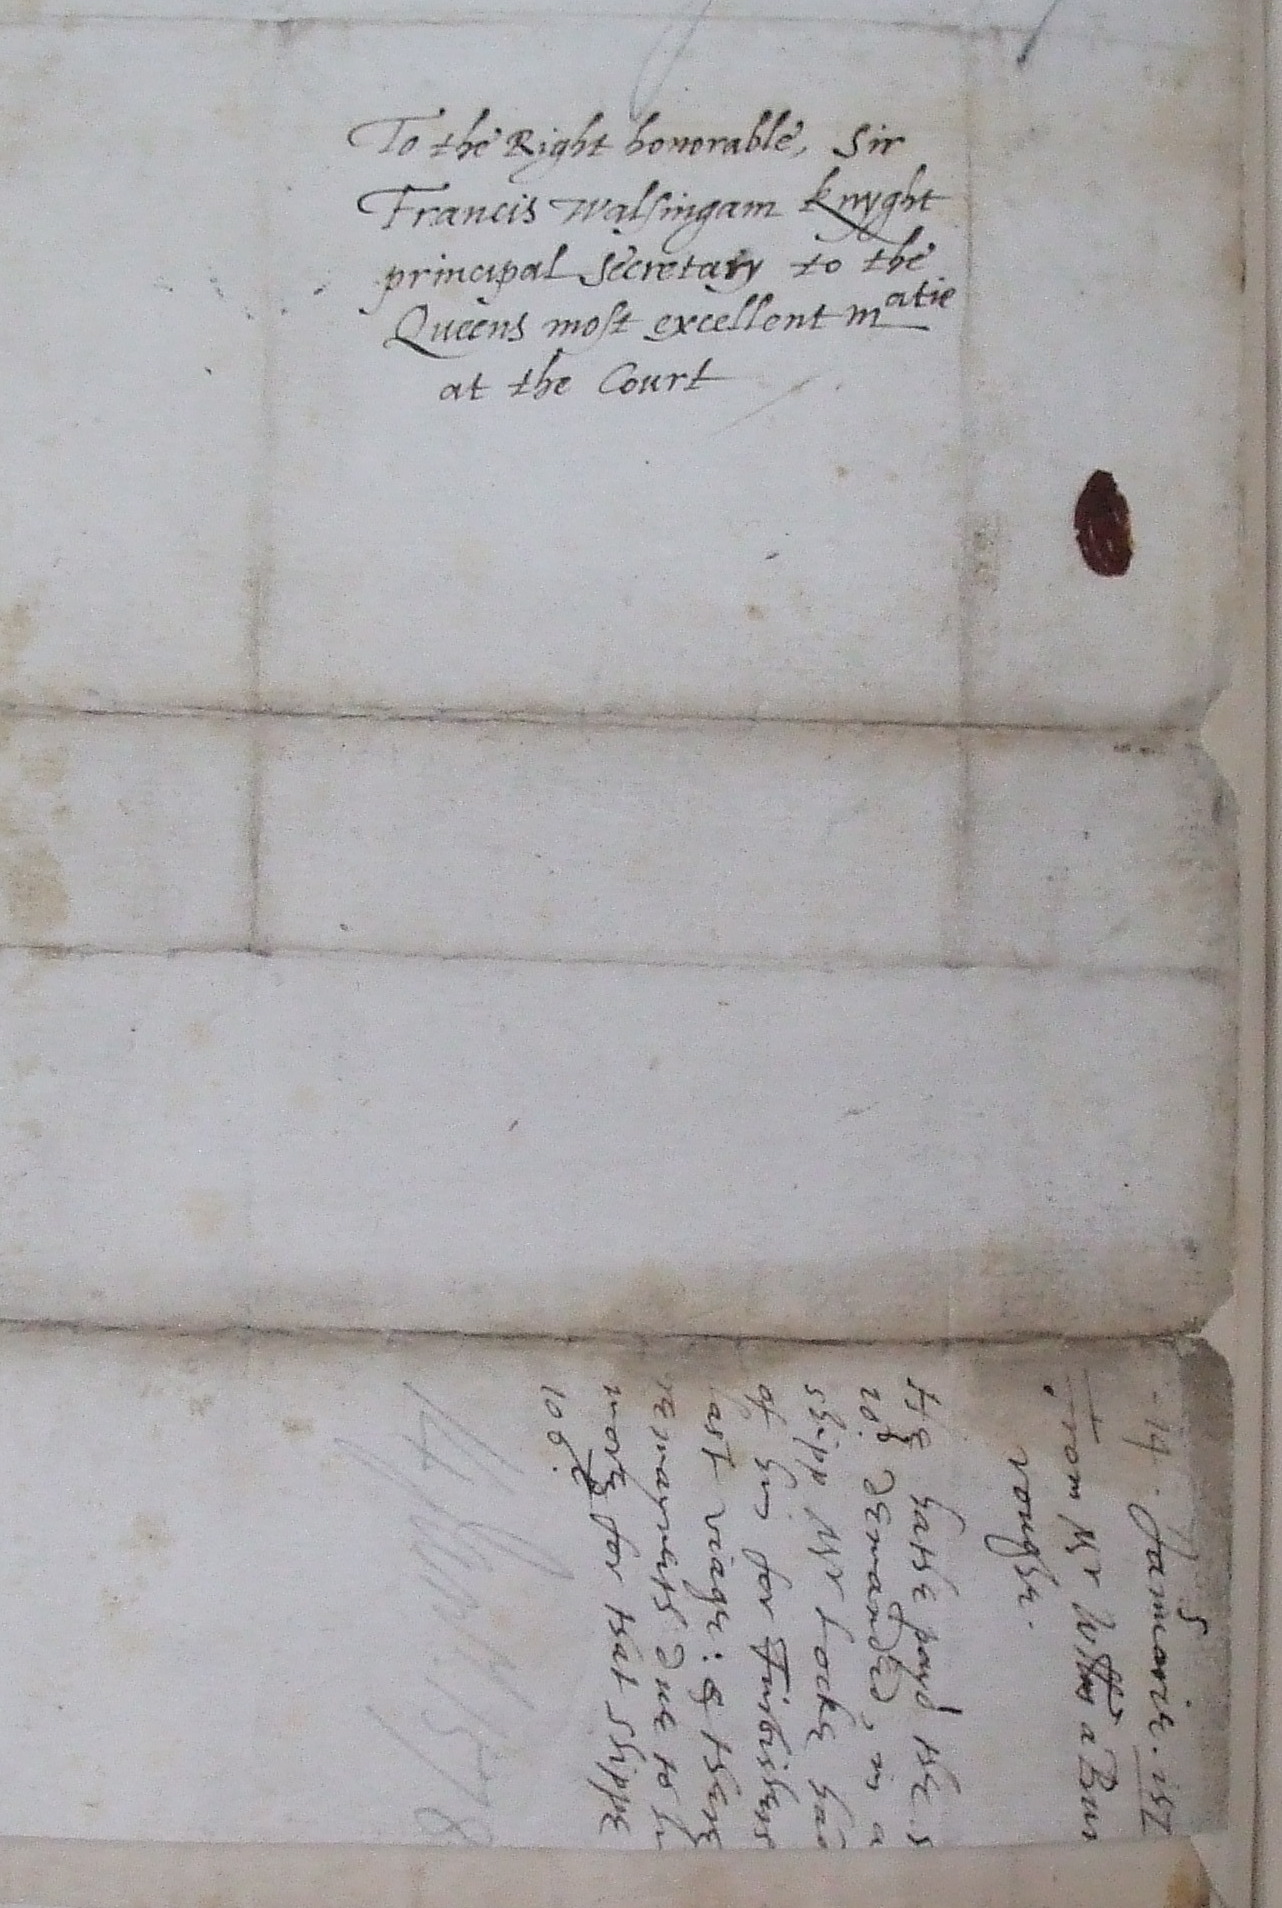 To the Right honorable, Sir
Francis Walsingam Knyght
principal Secretary to the
Queens most excellent Matie
at the Court
14 Januarie. 157
From Mr Willm a Bur
roughe.
He hathe payd the s
demanded, in a
shipp Mr Locke had
of him for Furbishers
last viage: & there
remayneth due to hi
more for that shippe
14 Jan. 1578